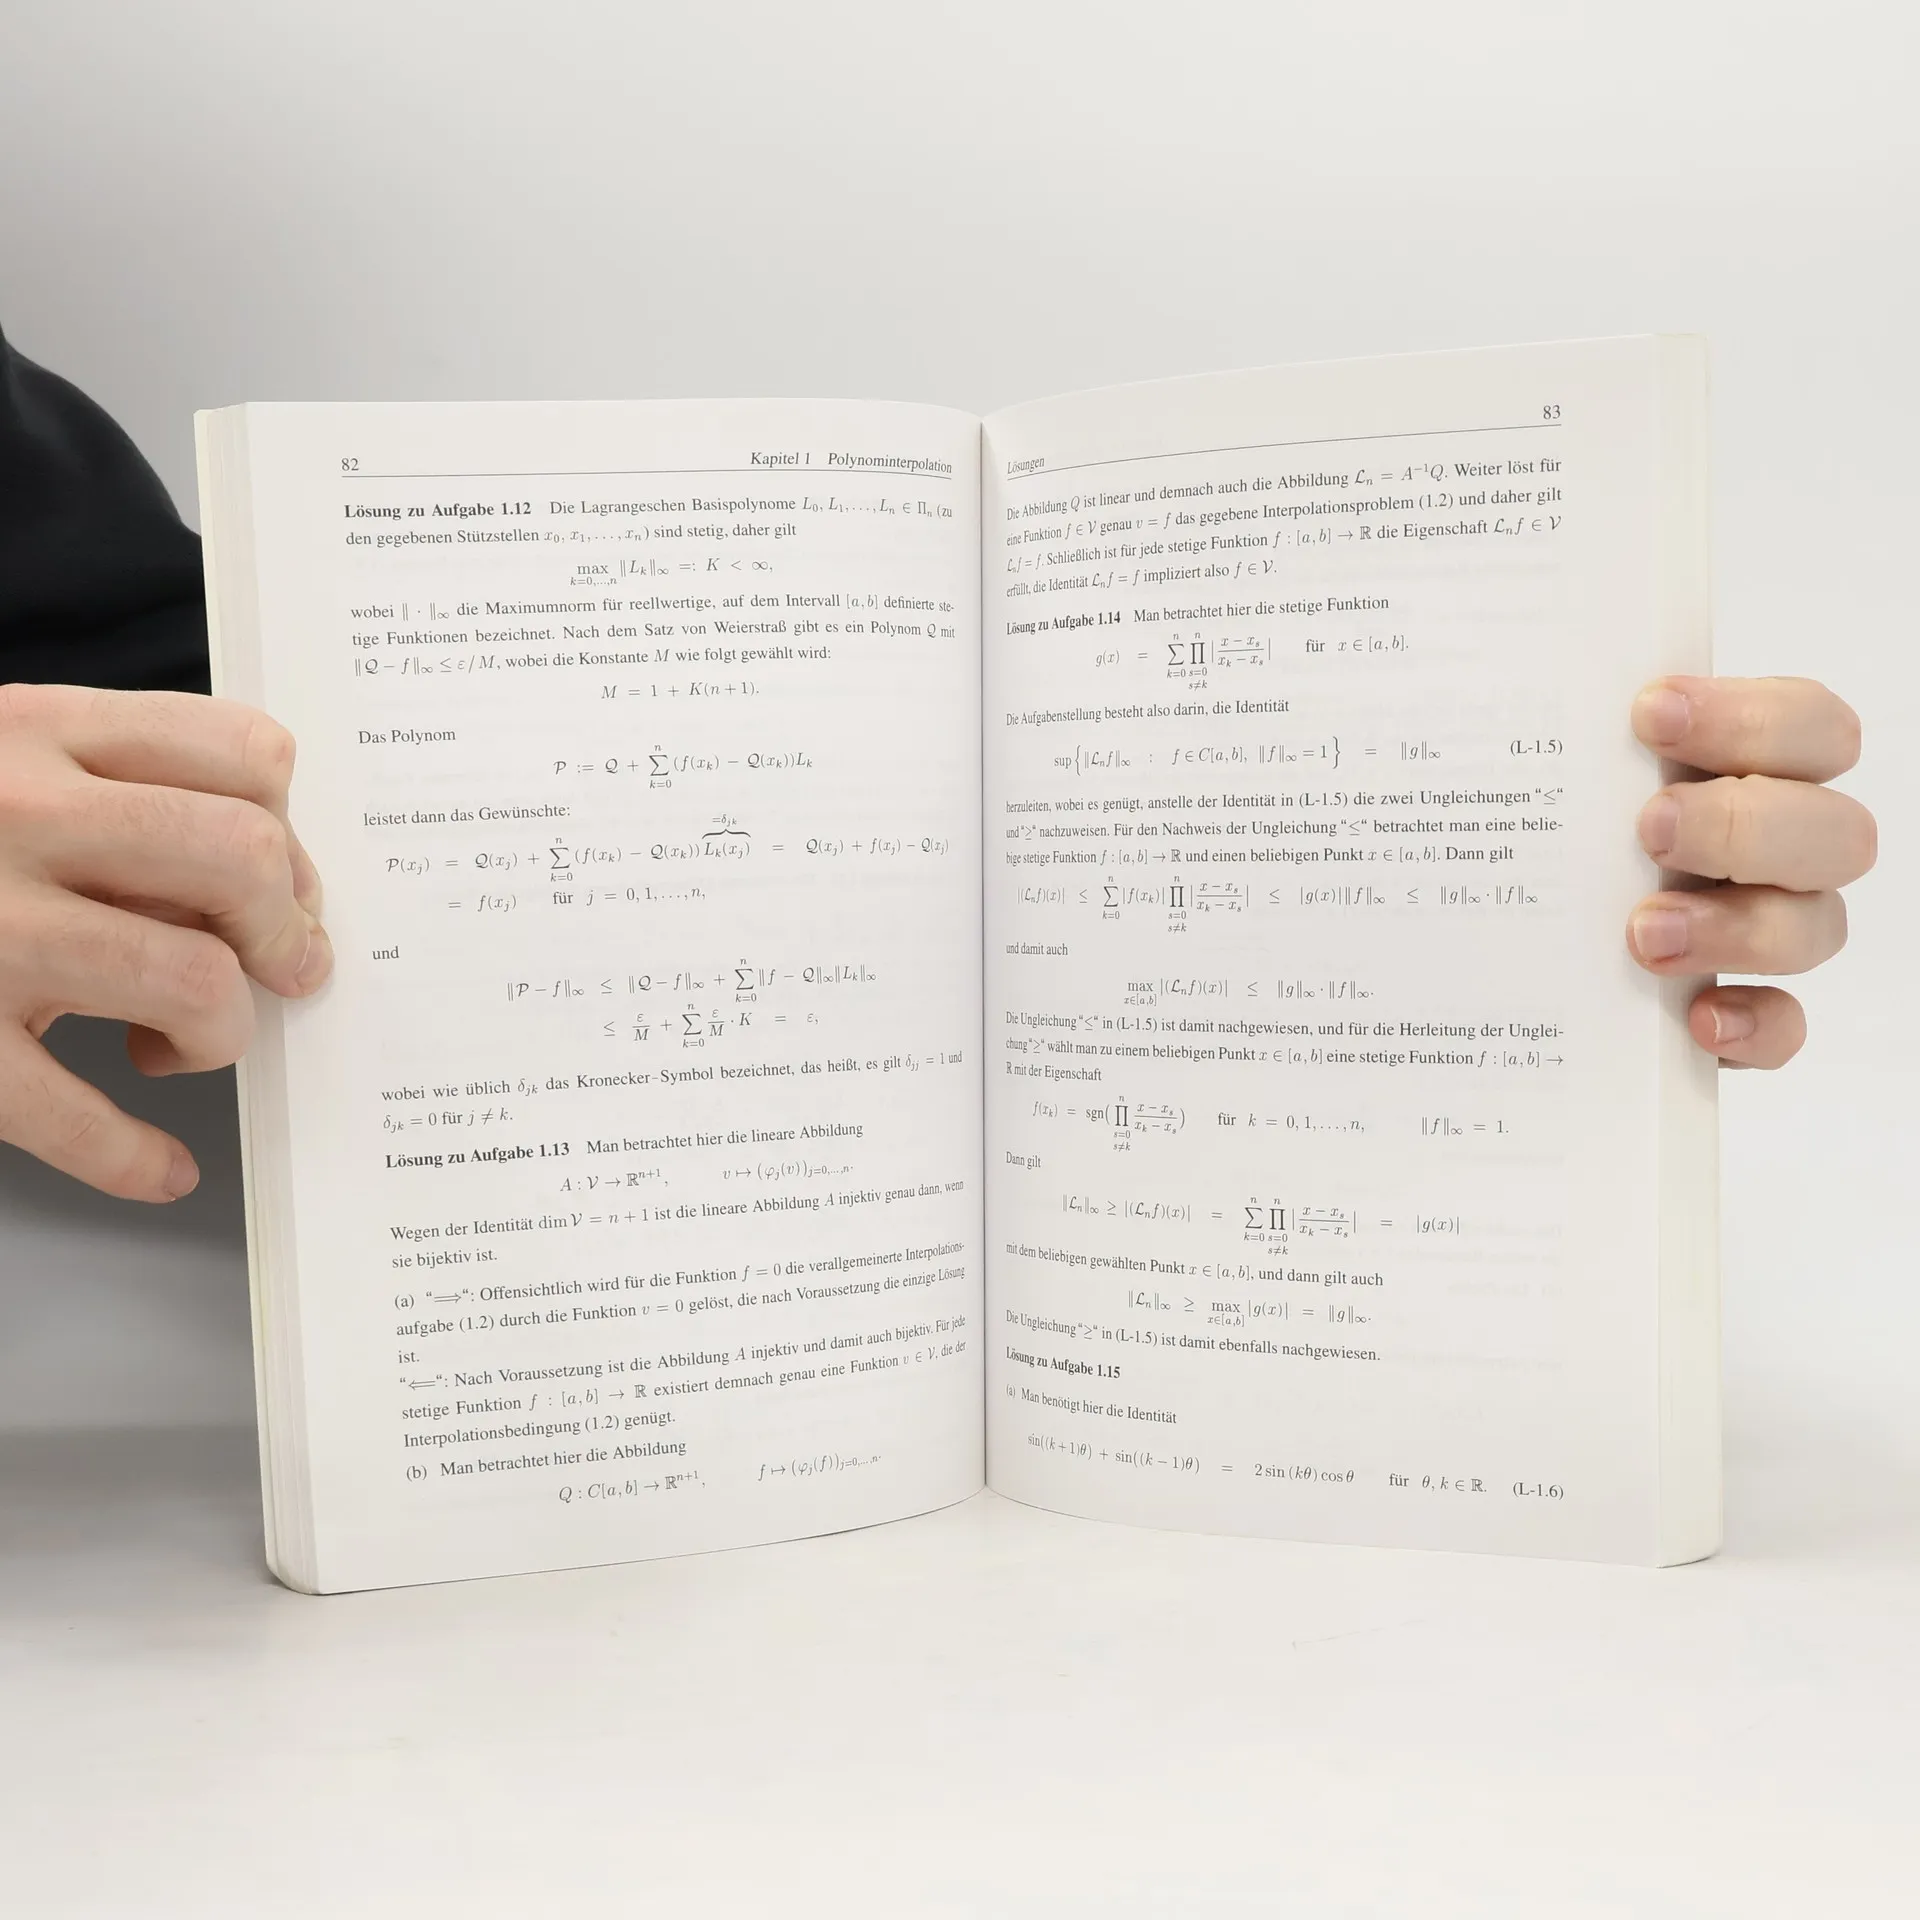 82 Kapitel 1 Polynominterpolation
Lösung zu Aufgabe 1.12 Die Lagrangeschen Basispolynome L₀, L₁, . . . , Lₙ ∈ Πₙ (zu
den gegebenen Stützstellen x₀, x₁, . . . , xₙ) sind stetig, daher gilt
max_{k=0,...,n} ‖L_k‖_∞ =: K < ∞,
wobei ‖ · ‖_∞ die Maximumnorm für reellwertige, auf dem Intervall [a, b] definierte ste-
tige Funktionen bezeichnet. Nach dem Satz von Weierstraß gibt es ein Polynom Q mit
‖Q − f‖_∞ ≤ ε/M, wobei die Konstante M wie folgt gewählt wird:
M = 1 + K(n + 1).
Das Polynom
P := Q + ∑_{k=0}^{n} (f(x_k) − Q(x_k))L_k
leistet dann das Gewünschte:
P(x_j) = Q(x_j) + ∑_{k=0}^{n} (f(x_k) − Q(x_k)) L_k(x_j) [=δ_{jk}] = Q(x_j) + f(x_j) − Q(x_j)
= f(x_j) für j = 0, 1, . . . , n,
und
‖P − f‖_∞ ≤ ‖Q − f‖_∞ + ∑_{k=0}^{n} ‖f − Q‖_∞‖L_k‖_∞
≤ ε/M + ∑_{k=0}^{n} ε/M · K = ε,
wobei wie üblich δ_{jk} das Kronecker–Symbol bezeichnet, das heißt, es gilt δ_{jj} = 1 und
δ_{jk} = 0 für j ≠ k.
Lösung zu Aufgabe 1.13 Man betrachtet hier die lineare Abbildung
A : V → ℝ^{n+1}, v ↦ (φ_j(v))_{j=0,...,n}.
Wegen der Identität dim V = n + 1 ist die lineare Abbildung A injektiv genau dann, wenn
sie bijektiv ist.
(a) “⟹“: Offensichtlich wird für die Funktion f = 0 die verallgemeinerte Interpolations-
aufgabe (1.2) durch die Funktion v = 0 gelöst, die nach Voraussetzung die einzige Lösung
ist.
“⟸“: Nach Voraussetzung ist die Abbildung A injektiv und damit auch bijektiv. Für jede
stetige Funktion f : [a, b] → ℝ existiert demnach genau eine Funktion v ∈ V, die der
Interpolationsbedingung (1.2) genügt.
(b) Man betrachtet hier die Abbildung
Q : C[a, b] → ℝ^{n+1}, f ↦ (φ_j(f))_{j=0,...,n}.
Lösungen 83
Die Abbildung Q ist linear und demnach auch die Abbildung L_n = A^{−1}Q. Weiter löst für
eine Funktion f ∈ V genau v = f das gegebene Interpolationsproblem (1.2) und daher gilt
L_n f = f. Schließlich ist für jede stetige Funktion f : [a, b] → ℝ die Eigenschaft L_n f ∈ V
erfüllt, die Identität L_n f = f impliziert also f ∈ V.
Lösung zu Aufgabe 1.14 Man betrachtet hier die stetige Funktion
g(x) = ∑_{k=0}^{n} ∏_{s=0, s≠k}^{n} |(x − x_s)/(x_k − x_s)| für x ∈ [a, b].
Die Aufgabenstellung besteht also darin, die Identität
sup{‖L_n f‖_∞ : f ∈ C[a, b], ‖f‖_∞ = 1} = ‖g‖_∞ (L-1.5)
herzuleiten, wobei es genügt, anstelle der Identität in (L-1.5) die zwei Ungleichungen “≤“
und “≥“ nachzuweisen. Für den Nachweis der Ungleichung “≤“ betrachtet man eine belie-
bige stetige Funktion f : [a, b] → ℝ und einen beliebigen Punkt x ∈ [a, b]. Dann gilt
|(L_n f)(x)| ≤ ∑_{k=0}^{n} |f(x_k)| ∏_{s=0, s≠k}^{n} |(x − x_s)/(x_k − x_s)| ≤ |g(x)|‖f‖_∞ ≤ ‖g‖_∞ · ‖f‖_∞
und damit auch
max_{x∈[a,b]} |(L_n f)(x)| ≤ ‖g‖_∞ · ‖f‖_∞.
Die Ungleichung “≤“ in (L-1.5) ist damit nachgewiesen, und für die Herleitung der Unglei-
chung “≥“ wählt man zu einem beliebigen Punkt x ∈ [a, b] eine stetige Funktion f : [a, b] →
ℝ mit der Eigenschaft
f(x_k) = sgn(∏_{s=0, s≠k}^{n} (x − x_s)/(x_k − x_s)) für k = 0, 1, . . . , n, ‖f‖_∞ = 1.
Dann gilt
‖L_n‖_∞ ≥ |(L_n f)(x)| = ∑_{k=0}^{n} ∏_{s=0, s≠k}^{n} |(x − x_s)/(x_k − x_s)| = |g(x)|
mit dem beliebigen gewählten Punkt x ∈ [a, b], und dann gilt auch
‖L_n‖_∞ ≥ max_{x∈[a,b]} |g(x)| = ‖g‖_∞.
Die Ungleichung “≥“ in (L-1.5) ist damit ebenfalls nachgewiesen.
Lösung zu Aufgabe 1.15
(a) Man benötigt hier die Identität
sin((k + 1)θ) + sin((k − 1)θ) = 2 sin (kθ) cos θ für θ, k ∈ ℝ. (L-1.6)